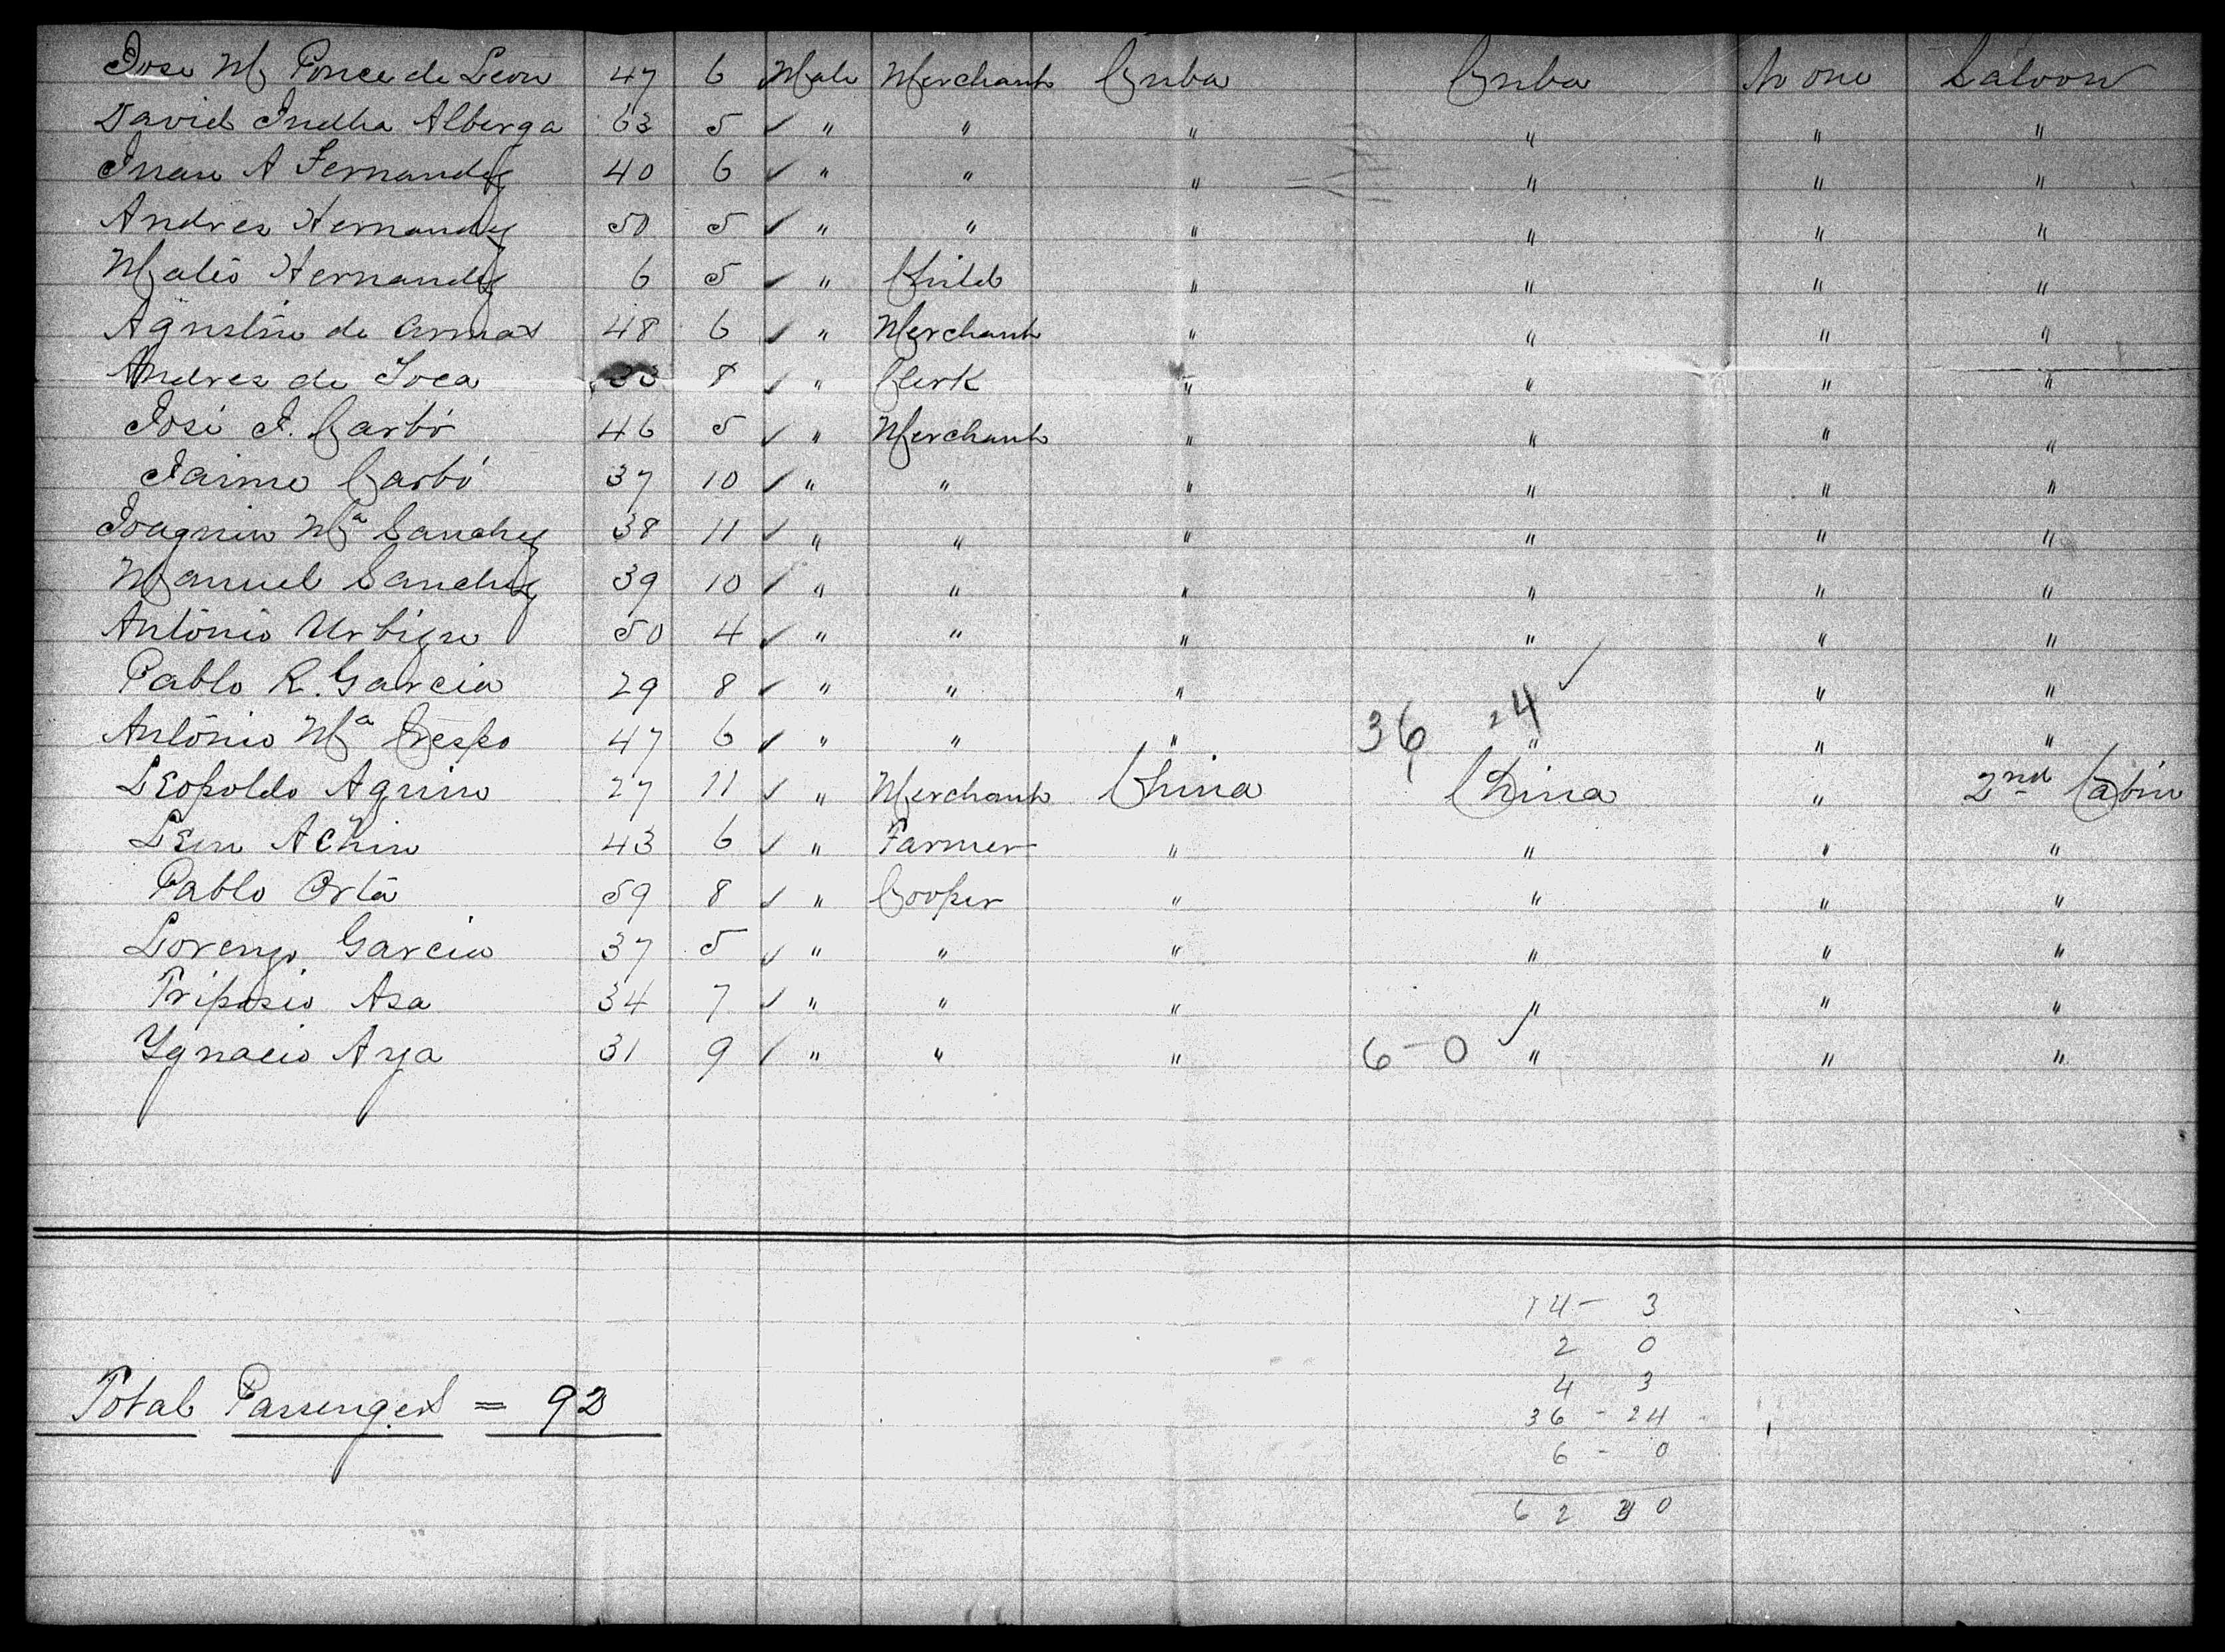 Jose M Ponce de Leon 47 6 Male Merchant Cuba Cuba None Saloon
David Alberga 63 5 ✓ " " " " " "
Juan A Fernandez 40 6 ✓ " " " " " "
Andres Hernandez 50 5 ✓ " " " " " "
Hernandez 6 5 ✓ " Child " " " "
Agustin de Armas 48 6 ✓ " Merchant " " " "
Andres de Toca 33 8 ✓ " Clerk " " " "
José J. Carbó 46 5 ✓ " Merchant " " " "
Jaime Carbó 37 10 ✓ " " " " " "
Joaquin Mª Sanchez 38 11 ✓ " " " " " "
Manuel Sanchez 39 10 ✓ " " " " " "
Antonio 50 4 ✓ " " " " " "
Pablo R. Garcia 29 8 ✓ " " " ✓ " "
Antonio Mª Crespo 47 6 ✓ " " " 36 24 " " "
Leopoldo Aguirre 27 11 ✓ " Merchant China China " 2nd Cabin
Leon Achin 43 6 ✓ " Farmer " " " "
Pablo Orta 59 8 ✓ " Cooper " " " "
Lorenzo Garcia 37 5 ✓ " " " " " "
Asa 34 7 ✓ " " " " " "
Ygnacio Aya 31 9 ✓ " " " 6 - 0 ✓ " " "
14 - 3
2 0
4 3
Total Passengers = 92
36 - 24
6 - 0
62 30